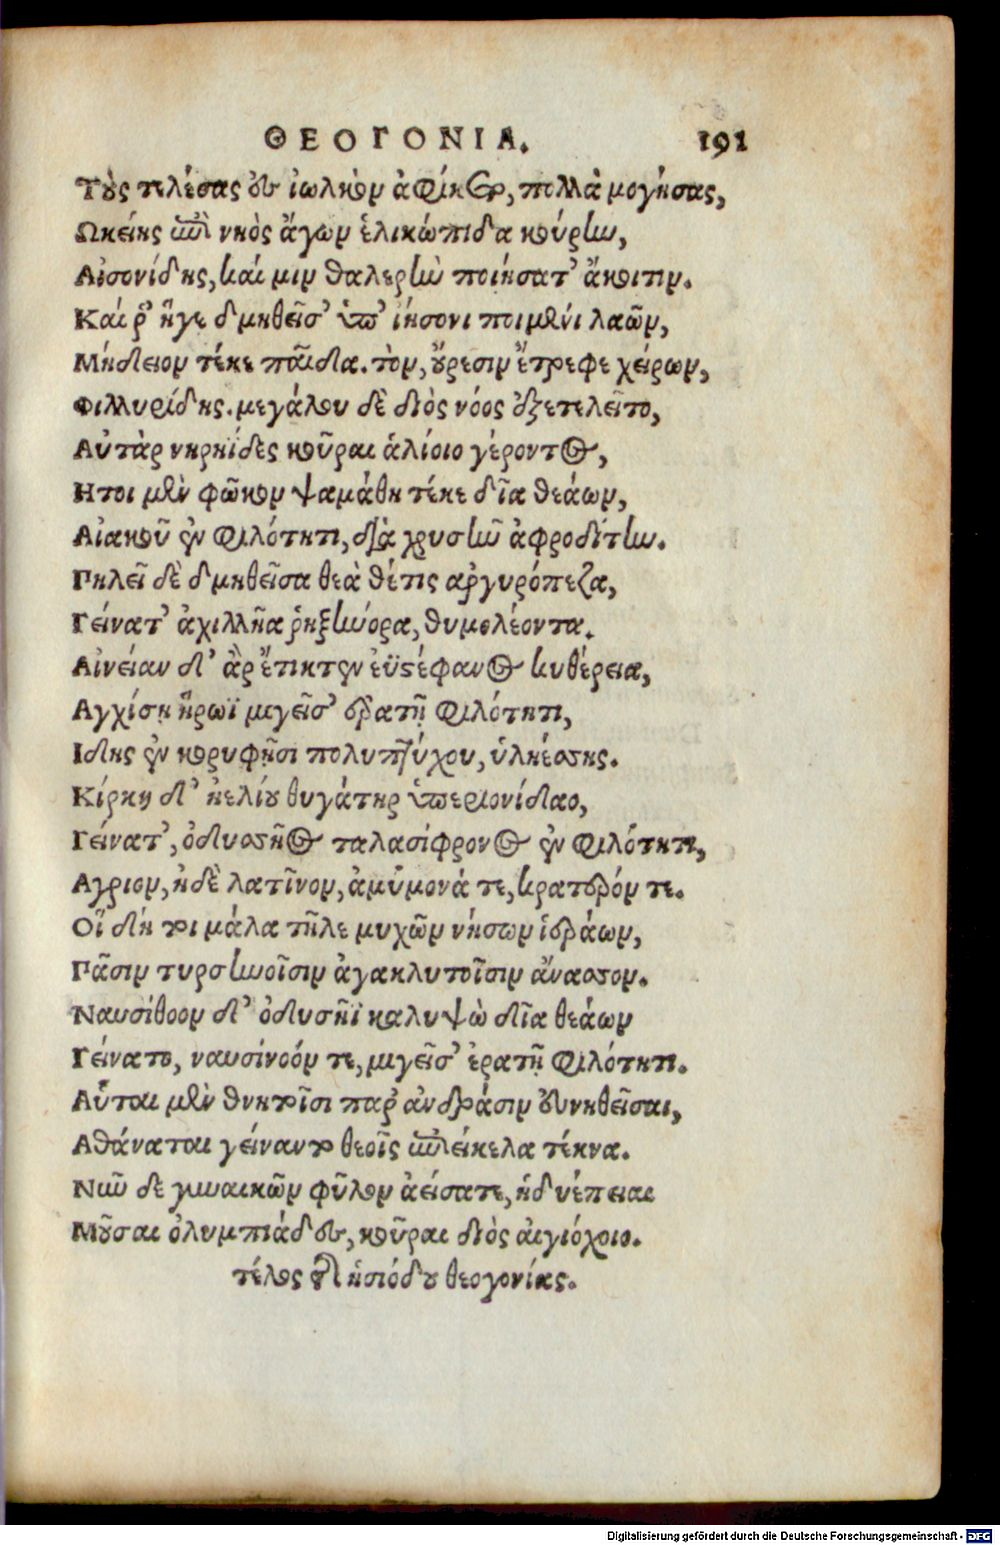 ΘΕΟΓΟΝΙΑ. 191
Τοὺς τελέσας ἐς ἰωλκὸν ἀφίκετο, πολλὰ μογήσας,
Ωκείης ἐπὶ νηὸς ἄγων ἑλικώπιδα κούρην,
Αἰσονίδης, καί μιν θαλερὴν ποιήσατ᾽ ἄκοιτιν.
Καί ῥ᾽ ἥγε δμηθεῖσ᾽ ὑπ᾽ ἰήσονι ποιμένι λαῶν,
Μήδειον τέκε παῖδα. τὸν, οὔρεσιν ἔτρεφε χείρων,
Φιλλυρίδης. μεγάλου δὲ διὸς νόος ἐξετελεῖτο,
Αὐτὰρ νηρηΐδες κοῦραι ἁλίοιο γέροντος,
Ητοι μὲν φῶκον ψαμάθη τέκε δῖα θεάων,
Αἰακοῦ ἐν φιλότητι, διὰ χρυσῆν ἀφροδίτην.
Πηλεῖ δὲ δμηθεῖσα θεὰ θέτις αργυρόπεζα,
Γείνατ᾽ ἀχιλλῆα ῥηξήνορα, θυμολέοντα.
Αἰνείαν δ᾽ ἂρ ἔτικτεν ἐϋστέφανος κυθέρεια,
Αγχίσῃ ἥρωϊ μιγεῖσ᾽ ἐρατῇ φιλότητι,
Ιδης ἐν κορυφῇσι πολυπτύχου, ὑληέσσης.
Κίρκη δ᾽ ἠελίου θυγάτηρ ὑπεριονίδαο,
Γείνατ᾽, ὀδυσσῆος ταλασίφρονος ἐν φιλότητι,
Αγριον, ἠδὲ λατῖνον, ἀμύμονά τε, κρατερόν τε.
Οἳ δή τοι μάλα τῆλε μυχῶν νήσων ἱεράων,
Πᾶσιν τυρσηνοῖσιν ἀγακλυτοῖσιν ἄνασσον.
Ναυσίθοον δ᾽ ὀδυσῆϊ καλυψὼ δῖα θεάων
Γείνατο, ναυσίνοόν τε, μιγεῖσ᾽ ἐρατῇ φιλότητι.
Αὗται μὲν θνητοῖσι παρ᾽ ἀνδράσιν εὐνηθεῖσαι,
Αθάναται γείναντο θεοῖς ἐπιείκελα τέκνα.
Νῦν δε γυναικῶν φῦλον ἀείσατε, ἡδυέπειαι
Μοῦσαι ὀλυμπιάδες, κοῦραι διὸς αἰγιόχοιο.
τέλος τῆς ἡσιόδου θεογονίας.
Digitalisierung gefördert durch die Deutsche Forschungsgemeinschaft - DFG